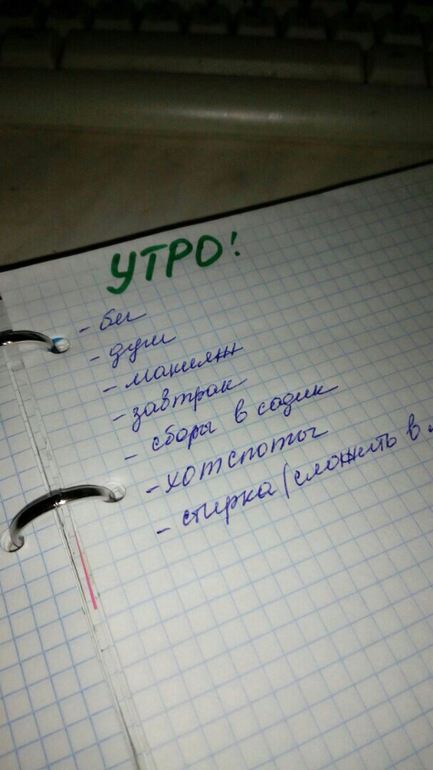 УТРО!
- бег
- душ
- макияж
- завтрак
- сборы в садик
- хотспоты
- стирка (сложить в